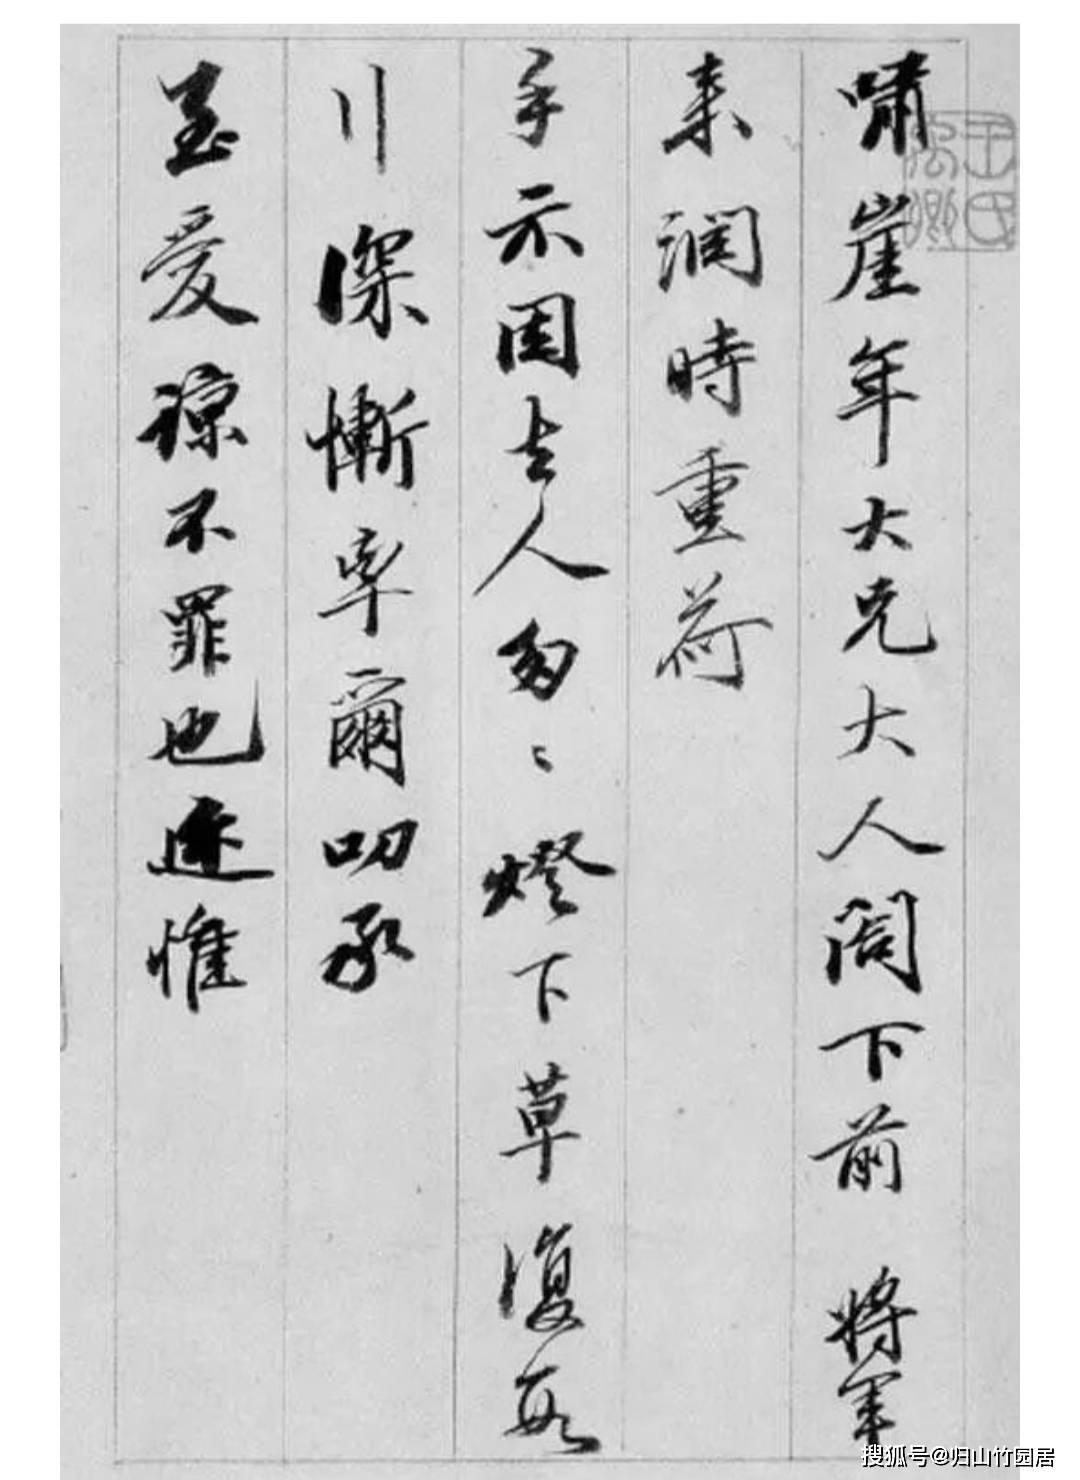 嘯崖年大兄大人閣下前將軍
來潤時重荷
手示因去人匆匆燈下草復數
行深慚率爾叨承
至愛諒不罪也迩惟
王氏禹卿
搜狐号@归山竹园居